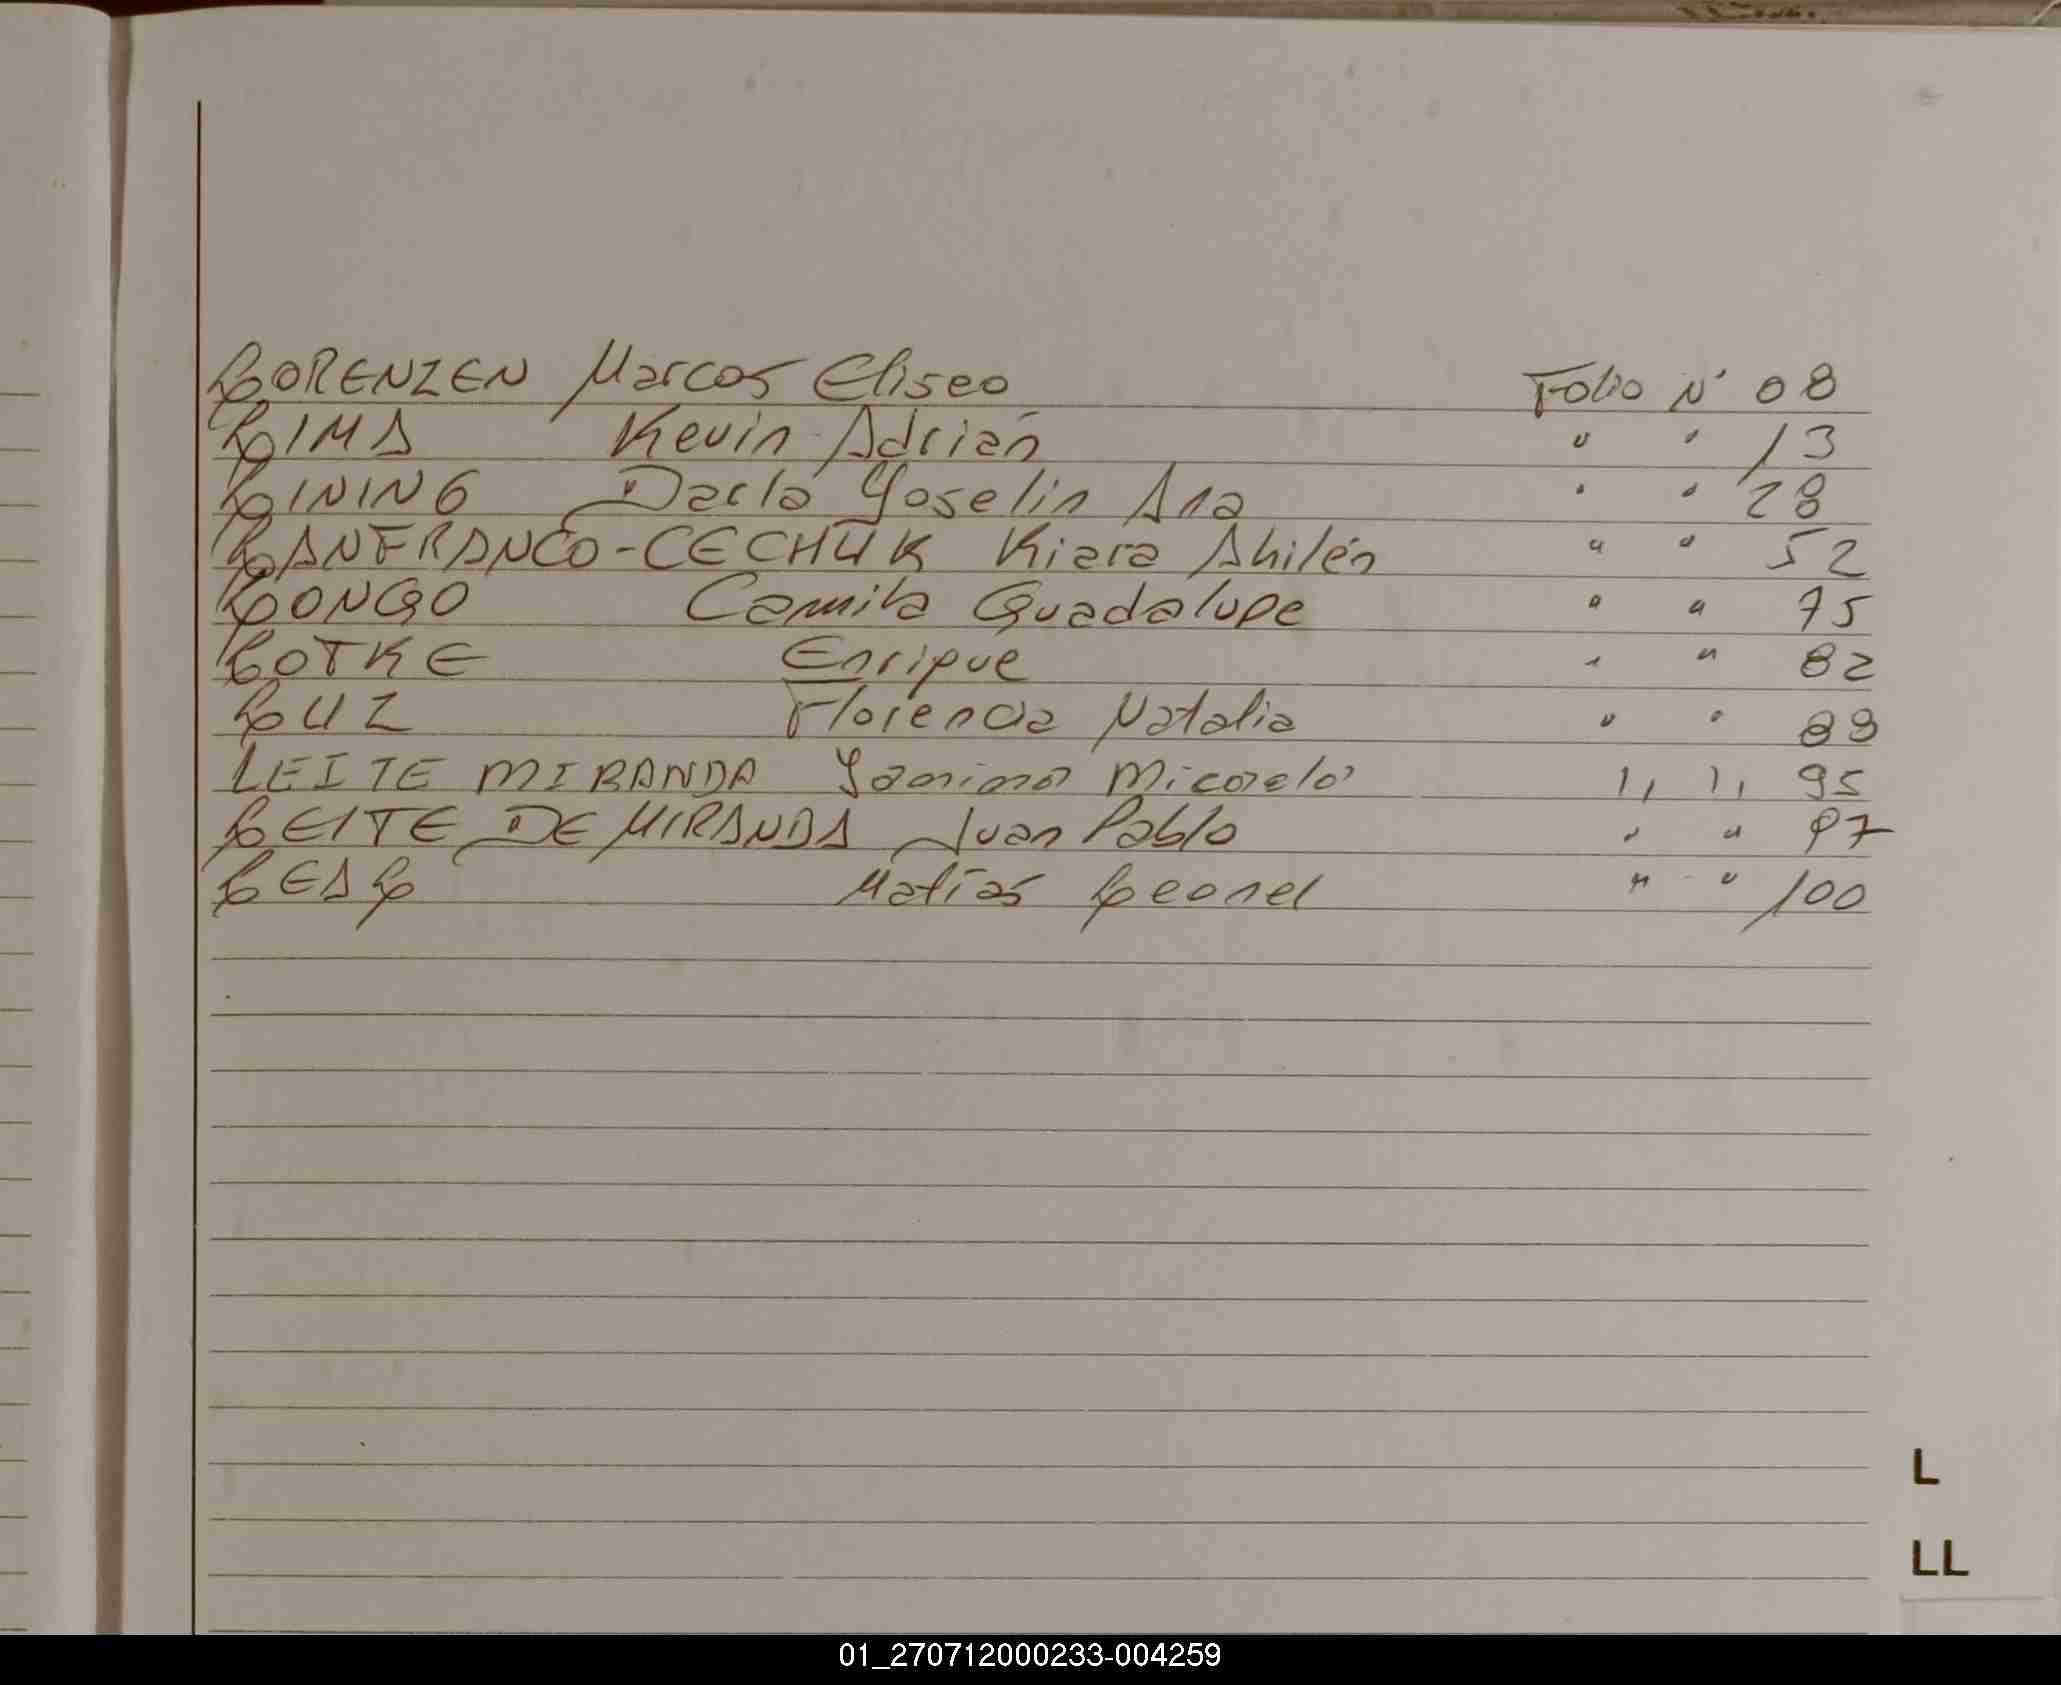 LORENZEN Marcos Eliseo Folio N° 08
LIMA Kevin Adrián " " 13
LINING Darla Yoselin Ana " " 28
LANFRANCO-CECHUK Kiara Ahilén " " 52
LONGO Camila Guadalupe " " 75
LOTKE Enrique " " 82
LUZ Florencia Natalia " " 89
LEITE MIRANDA Yanina Micaela " " 95
LEITE DE MIRANDA Juan Pablo " " 97
LEAL Matías Leonel " " 100
L
LL
01_270712000233-004259